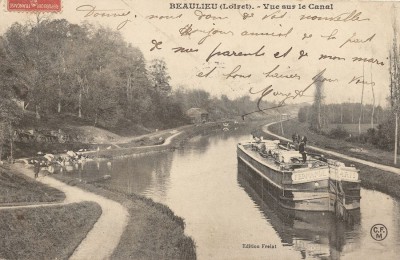 BEAULIEU (Loiret). - Vue sur le Canal
Donnez-nous donc de vos nouvelles
Bonjour amical de la part
de mes parents et de mon mari
et bons baisers
Edition Freixt
C.F.
M